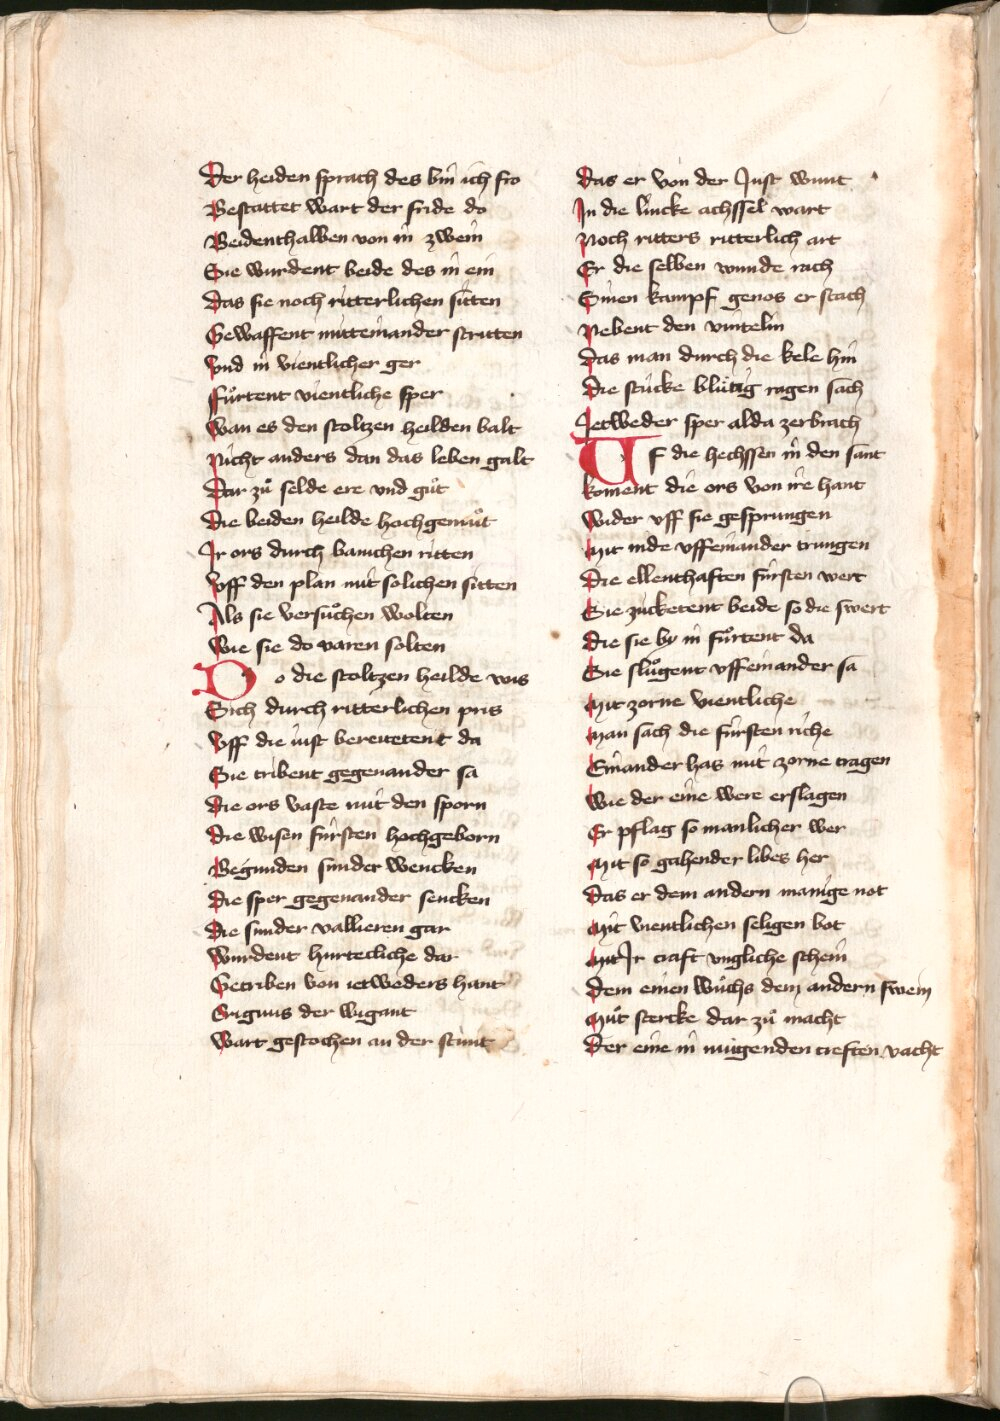 Der heiden sprach des bin ich fro
Bestattet wart der fride do
Beidenthalben von in zwein
Sie wurdent beide des in ein
Das sie noch ritterlichen sitten
Gewaffent mitteinander stritten
Vnd in vientlicher ger
Fuͦrtent vientliche sper
Wan es den stoltzen heilden balt
Nicht anders dan das leben galt
Dar zuͦ selde ere vnd guͦt
Die beiden heilde hochgemuͦt
Ir ors durch banichen ritten
Vff den plan mit solichen sitten
Als sie versuͦchen wolten
Wie sie do varen solten
Do die stoltzen heilde wis
Sich durch ritterlichen pris
Vff die iust bereitetent da
Sie tribent gegenander sa
Die ors vaste mit den sporn
Die wisen fursten hochgeborn
Begunden sunder wencken
Die sper gegenander sencken
Die sunder vallieren gar
Wurdent hurtecliche dar
Getriben von ietweders hant
Grignus der wigant
Wart gestochen an der stunt
Das er von der Just wunt
In die lincke achssel wart
Noch ritters ritterlich art
Er die selben wunde rach
Sinen kampf genos er stach
Nebent den vintelin
Das man durch die kele hin
Die stucke blutig ragen sach
Jetweder sper alda zerbrach
Uf die hechssen in den sant
Koment die ors von ire hant
Wider vff sie gesprungen
Mit nide vffeinander trungen
Die ellenthaften fursten wert
Sie zucketent beide so die swert
Die sie by in fuͦrtent da
Sie sluͦgent vffeinander sa
Mit zorne vientliche
Man sach die fursten riche
Einander has mit zorne tragen
Wie der eine were erslagen
Er pflag so manlicher wer
Mit so gahender libes her
Das er dem andern manige not
Mit vientlichen seligen bot
Mit Ir craft vngliche schein
Dem einen wuͦchs dem andern swein
Muͦt stercke dar zuͦ macht
Der eine in mugenden creften vacht